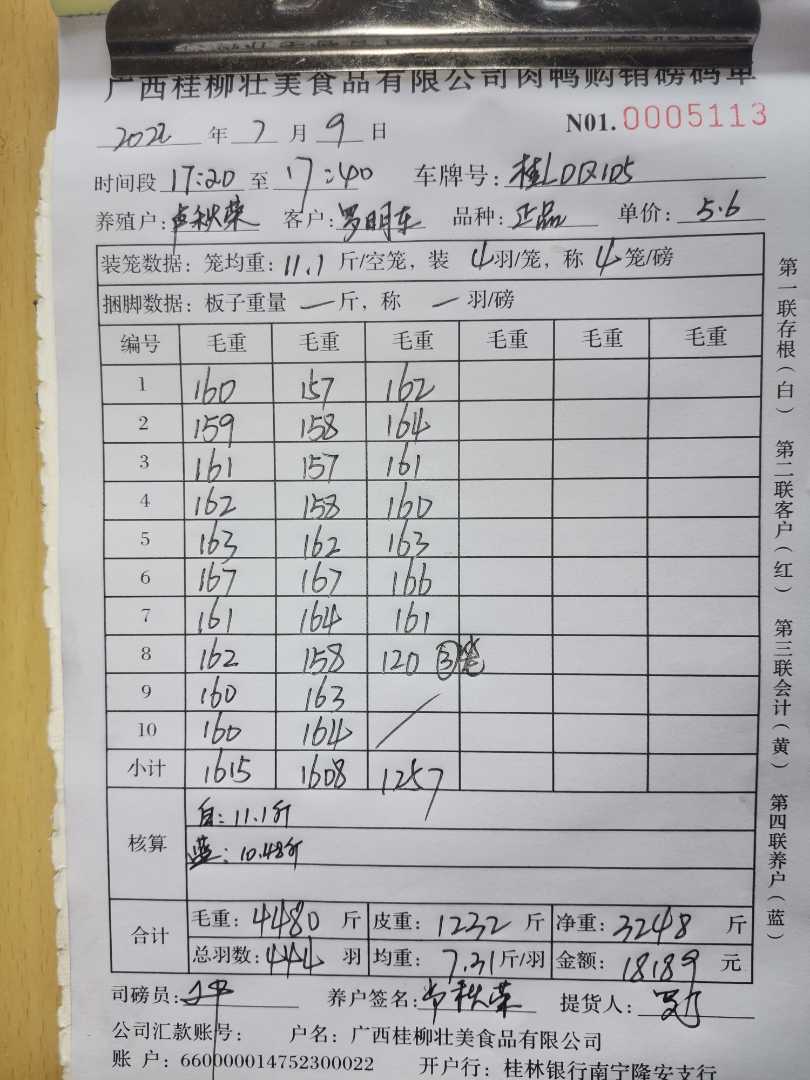 广西桂柳壮美食品有限公司肉鸭购销磅码单
2022 年 7 月 9 日 N01. 0005113
时间段 17:20 至 17:40 车牌号: 桂LDQ105
养殖户: 卢秋荣 客户: 罗明东 品种: 正品 单价: 5.6
装笼数据: 笼均重: 11.1 斤/空笼, 装 4 羽/笼, 称 4 笼/磅
捆脚数据: 板子重量 — 斤, 称 — 羽/磅
编号 毛重 毛重 毛重 毛重 毛重 毛重
1 160 157 162
2 159 158 164
3 161 157 161
4 162 158 160
5 163 162 163
6 167 167 166
7 161 164 161
8 162 158 120 ③笼
9 160 163
10 160 164
小计 1615 1608 1257
核算
白: 11.1斤
蓝: 10.48斤
合计
毛重: 4480 斤 皮重: 1232 斤 净重: 3248 斤
总羽数: 444 羽 均重: 7.31 斤/羽 金额: 18189 元
司磅员: 养户签名: 卢秋荣 提货人:
公司汇款账号: 户名: 广西桂柳壮美食品有限公司
账 户: 660000014752300022 开户行: 桂林银行南宁隆安支行
第一联存根(白) 第二联客户(红) 第三联会计(黄) 第四联养户(蓝)